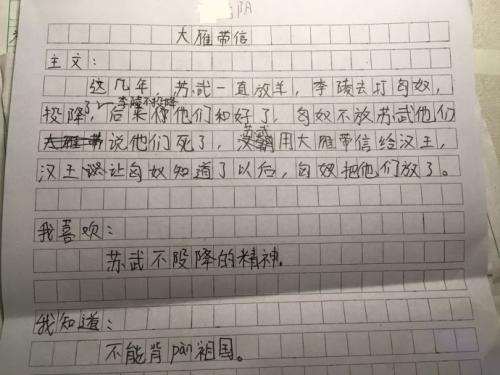 阴
大雁带信
主文：
这几年，苏武一直放羊，李陵去打匈奴，
投降了，后来他们和好了，匈奴不放苏武他们
李陵不投降
说他们死了，用大雁带信给汉王，
汉王让匈奴知道了以后，匈奴把他们放了。
我喜欢：
苏武不投降的精神。
我知道：
不能背pàn祖国。